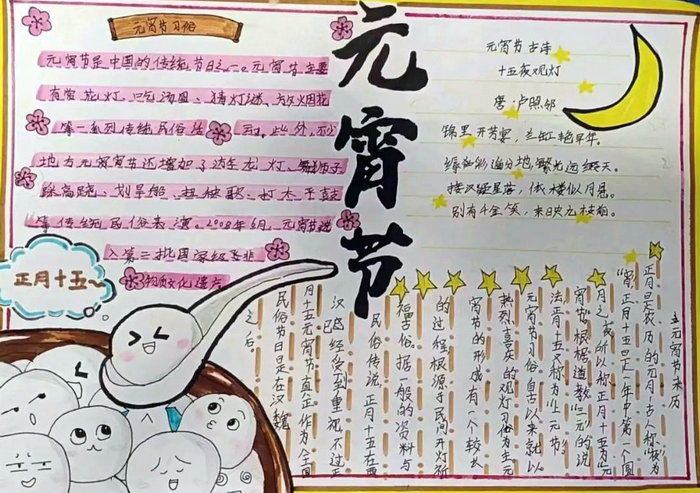 元宵节
元宵节习俗
元宵节是中国的传统节日之一。元宵节主要
有赏花灯、吃汤圆、猜灯谜、放烟花
等一系列传统民俗活动。此外,不少
地方元宵节还增加了游龙灯、舞狮子
踩高跷、划旱船、扭秧歌、打太平鼓
等传统民俗表演。2008年6月,元宵节选
入第二批国家级非
物质文化遗产
正月十五~
元宵节古诗
十五夜观灯
唐·卢照邻
锦里开芳宴,兰缸艳早年。
缛彩遥分地,繁光远缀天。
接汉疑星落,依楼似月悬。
别有千金笑,来映九枝前。
元宵节来历
正月是农历的元月,古人称"夜"为
"宵",正月十五是一年中第一个圆
月之夜,所以称正月十五为"元
宵节"。根据道教"三元"的说
法,正月十五又称为"上元节"。
元宵节习俗自古以来就以
热烈喜庆的观灯习俗为主。元
宵节的形成有一个较长
的过程,根源于民间开灯祈
福古俗。据一般的资料与
民俗传说,正月十五在西
汉已经受到重视,不过正
月十五元宵节真正作为全国
民俗节日是在汉魏
之后。